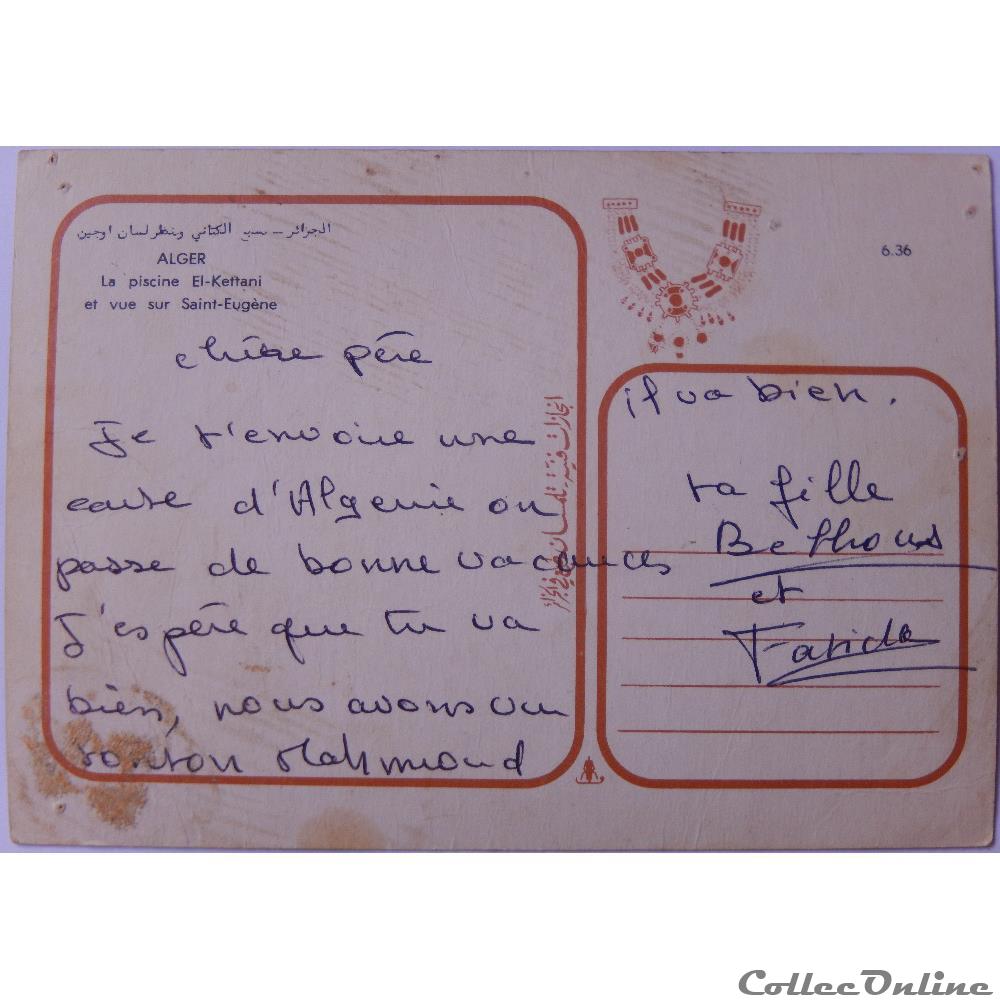 الجزائر – مسبح الكتاني ومنظر لسان اوجين
ALGER
La piscine El-Kettani
et vue sur Saint-Eugène
6.36
chère père
Je t'envoie une
carte d'Algerie on
passe de bonne vacances
J'espère que tu va
bien, nous avons vu
tonton Mahmoud
il va bien.
ta fille
et
Farida
CollecOnline